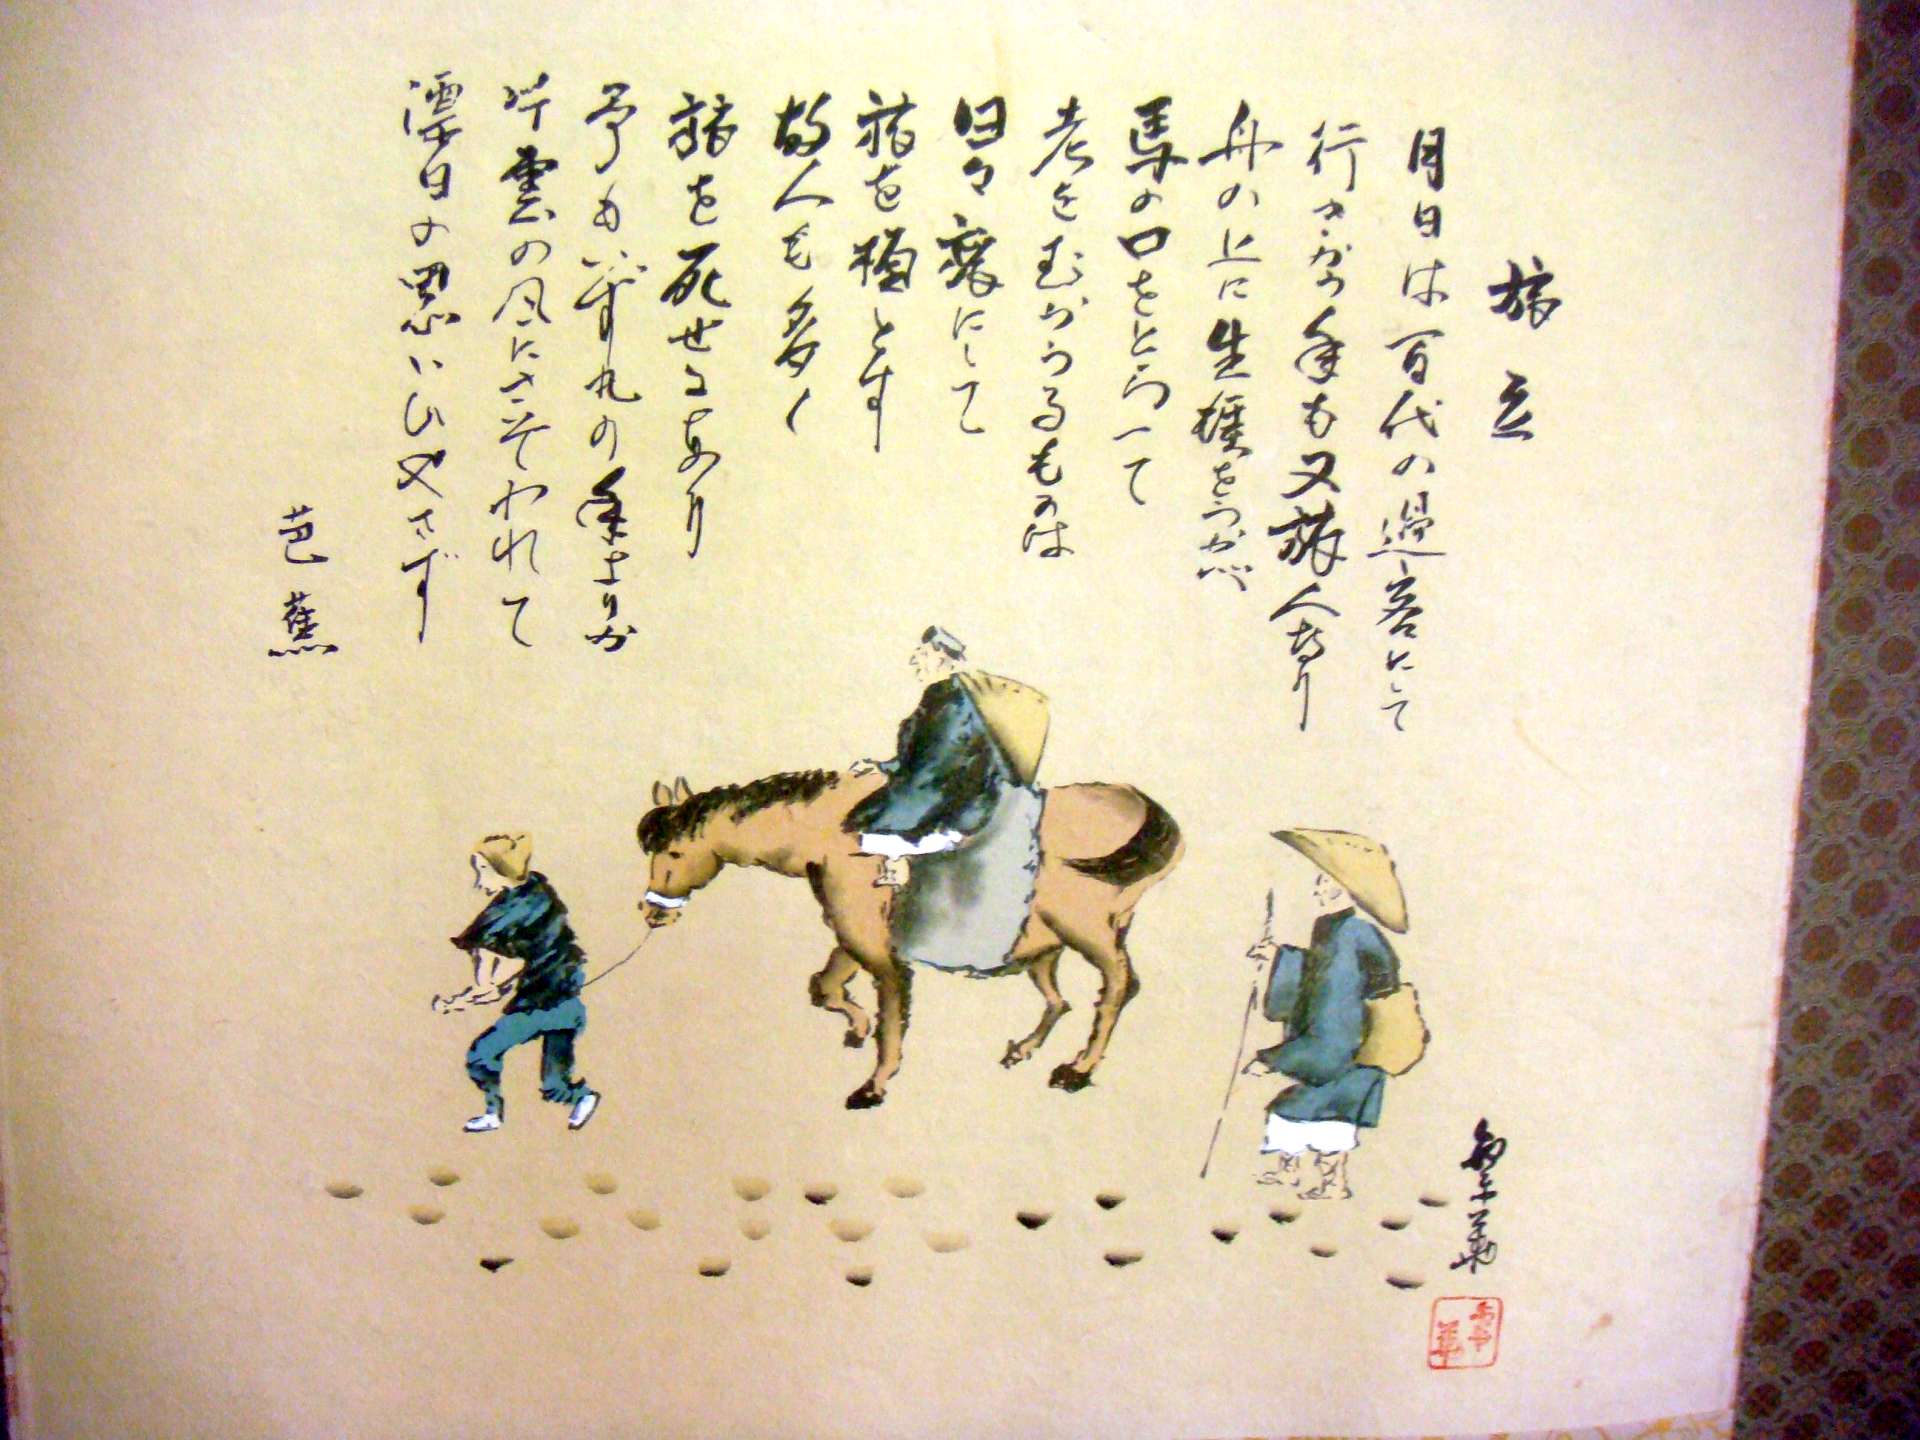 旅立
月日は百代の過客にして
行かふ年も又旅人なり
舟の上に生涯をうかべ
馬の口をとらへて
老をむかふるものは
日々旅にして
旅を栖とす
故人も多く
旅を死せるあり
予もいずれの年よりか
片雲の風にさそわれて
漂白の思いひやまず
芭蕉